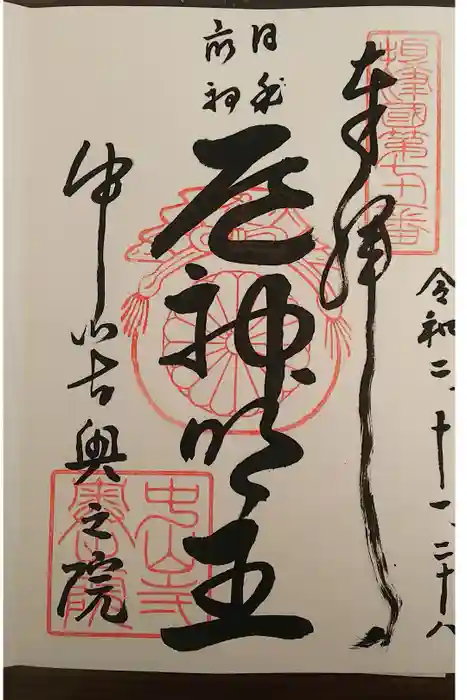 摂津國第七十番
奉拝
令和二、十一、二十八
日本
最初
厄神明王
中山寺奥之院
中山寺
奥院